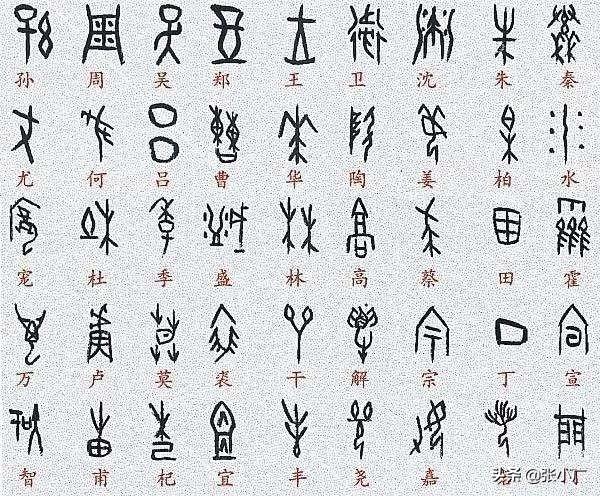 孙 周 吴 郑 王 卫 沈 朱 秦
尤 何 吕 曹 华 陶 姜 柏 水
宠 杜 季 盛 林 高 蔡 田 霍
万 卢 莫 裘 干 解 宗 丁 宣
智 甫 杞 宜 丰 尧 嘉
头条 @张小厂